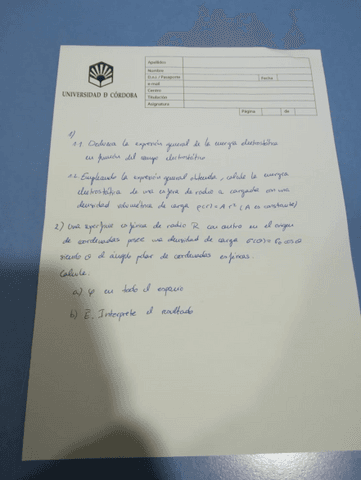 UNIVERSIDAD D CÓRDOBA
Apellidos
Nombre
D.N.I / Pasaporte
Fecha
e-mail
Centro
Titulación
Asignatura
Página
de
1)
1.1. Deduzca la expresión general de la energía electrostática
en función del campo electrostático
1.2. Empleando la expresión general obtenida, calcule la energía
electrostática de una esfera de radio a cargada con una
densidad volumétrica de carga ρ(r) = A r² (A es constante)
2) Una superficie esférica de radio R con centro en el origen
de coordenadas posee una densidad de carga σ(θ) = σ₀ cos θ
siendo θ el ángulo polar de coordenadas esféricas.
Calcule:
a) φ en todo el espacio
b) E. Interprete el resultado